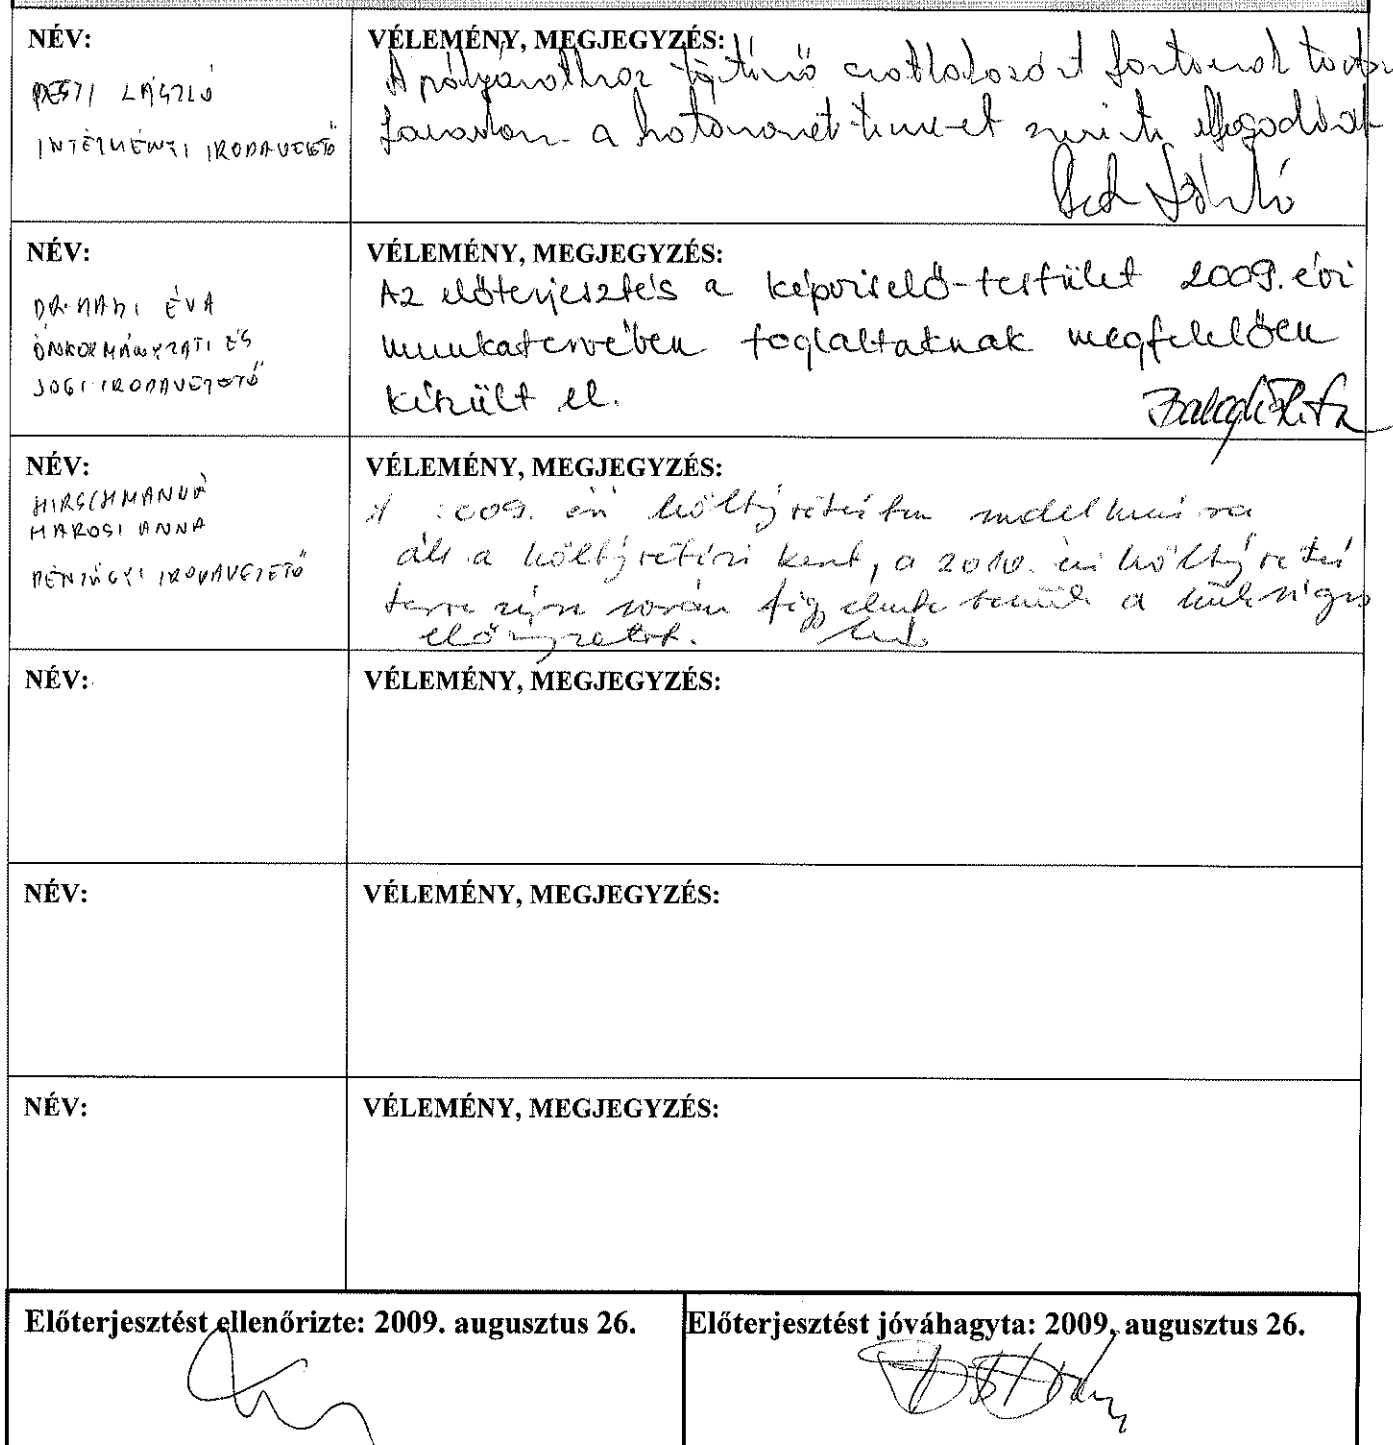 NÉV:
PESTI LÁSZLÓ
INTÉZMÉNYI IRODAVEZETŐ
VÉLEMÉNY, MEGJEGYZÉS:
A pályázathoz történő csatlakozást fontosnak tartom
javaslom a határozat elfogadását
NÉV:
DR. HADI ÉVA
ÖNKORMÁNYZATI ÉS
JOGI IRODAVEZETŐ
VÉLEMÉNY, MEGJEGYZÉS:
Az előterjesztés a képviselő-testület 2009. évi
munkatervében foglaltaknak megfelelően
készült el.
Balogh Rita
NÉV:
HIRSCHMANNÉ
MAROSI ANNA
PÉNZÜGYI IRODAVEZETŐ
VÉLEMÉNY, MEGJEGYZÉS:
A 2009. évi költségvetésben rendelkezésre
áll a költségvetési keret, a 2010. évi költségvetés
tervezése során figyelembe vesszük a szükséges
előirányzatot.
NÉV:
VÉLEMÉNY, MEGJEGYZÉS:
NÉV:
VÉLEMÉNY, MEGJEGYZÉS:
NÉV:
VÉLEMÉNY, MEGJEGYZÉS:
Előterjesztést ellenőrizte: 2009. augusztus 26.
Előterjesztést jóváhagyta: 2009. augusztus 26.